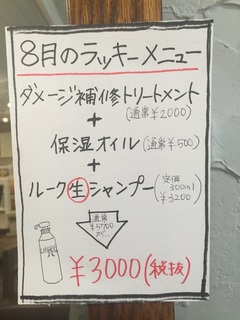 8月のラッキーメニュー
ダメージ補修トリートメント
(通常¥2000)
+
保湿オイル(通常¥500)
+
ルーク生シャンプー(定価300ml¥3200)
通常
¥5700
が…
¥3000(税抜)